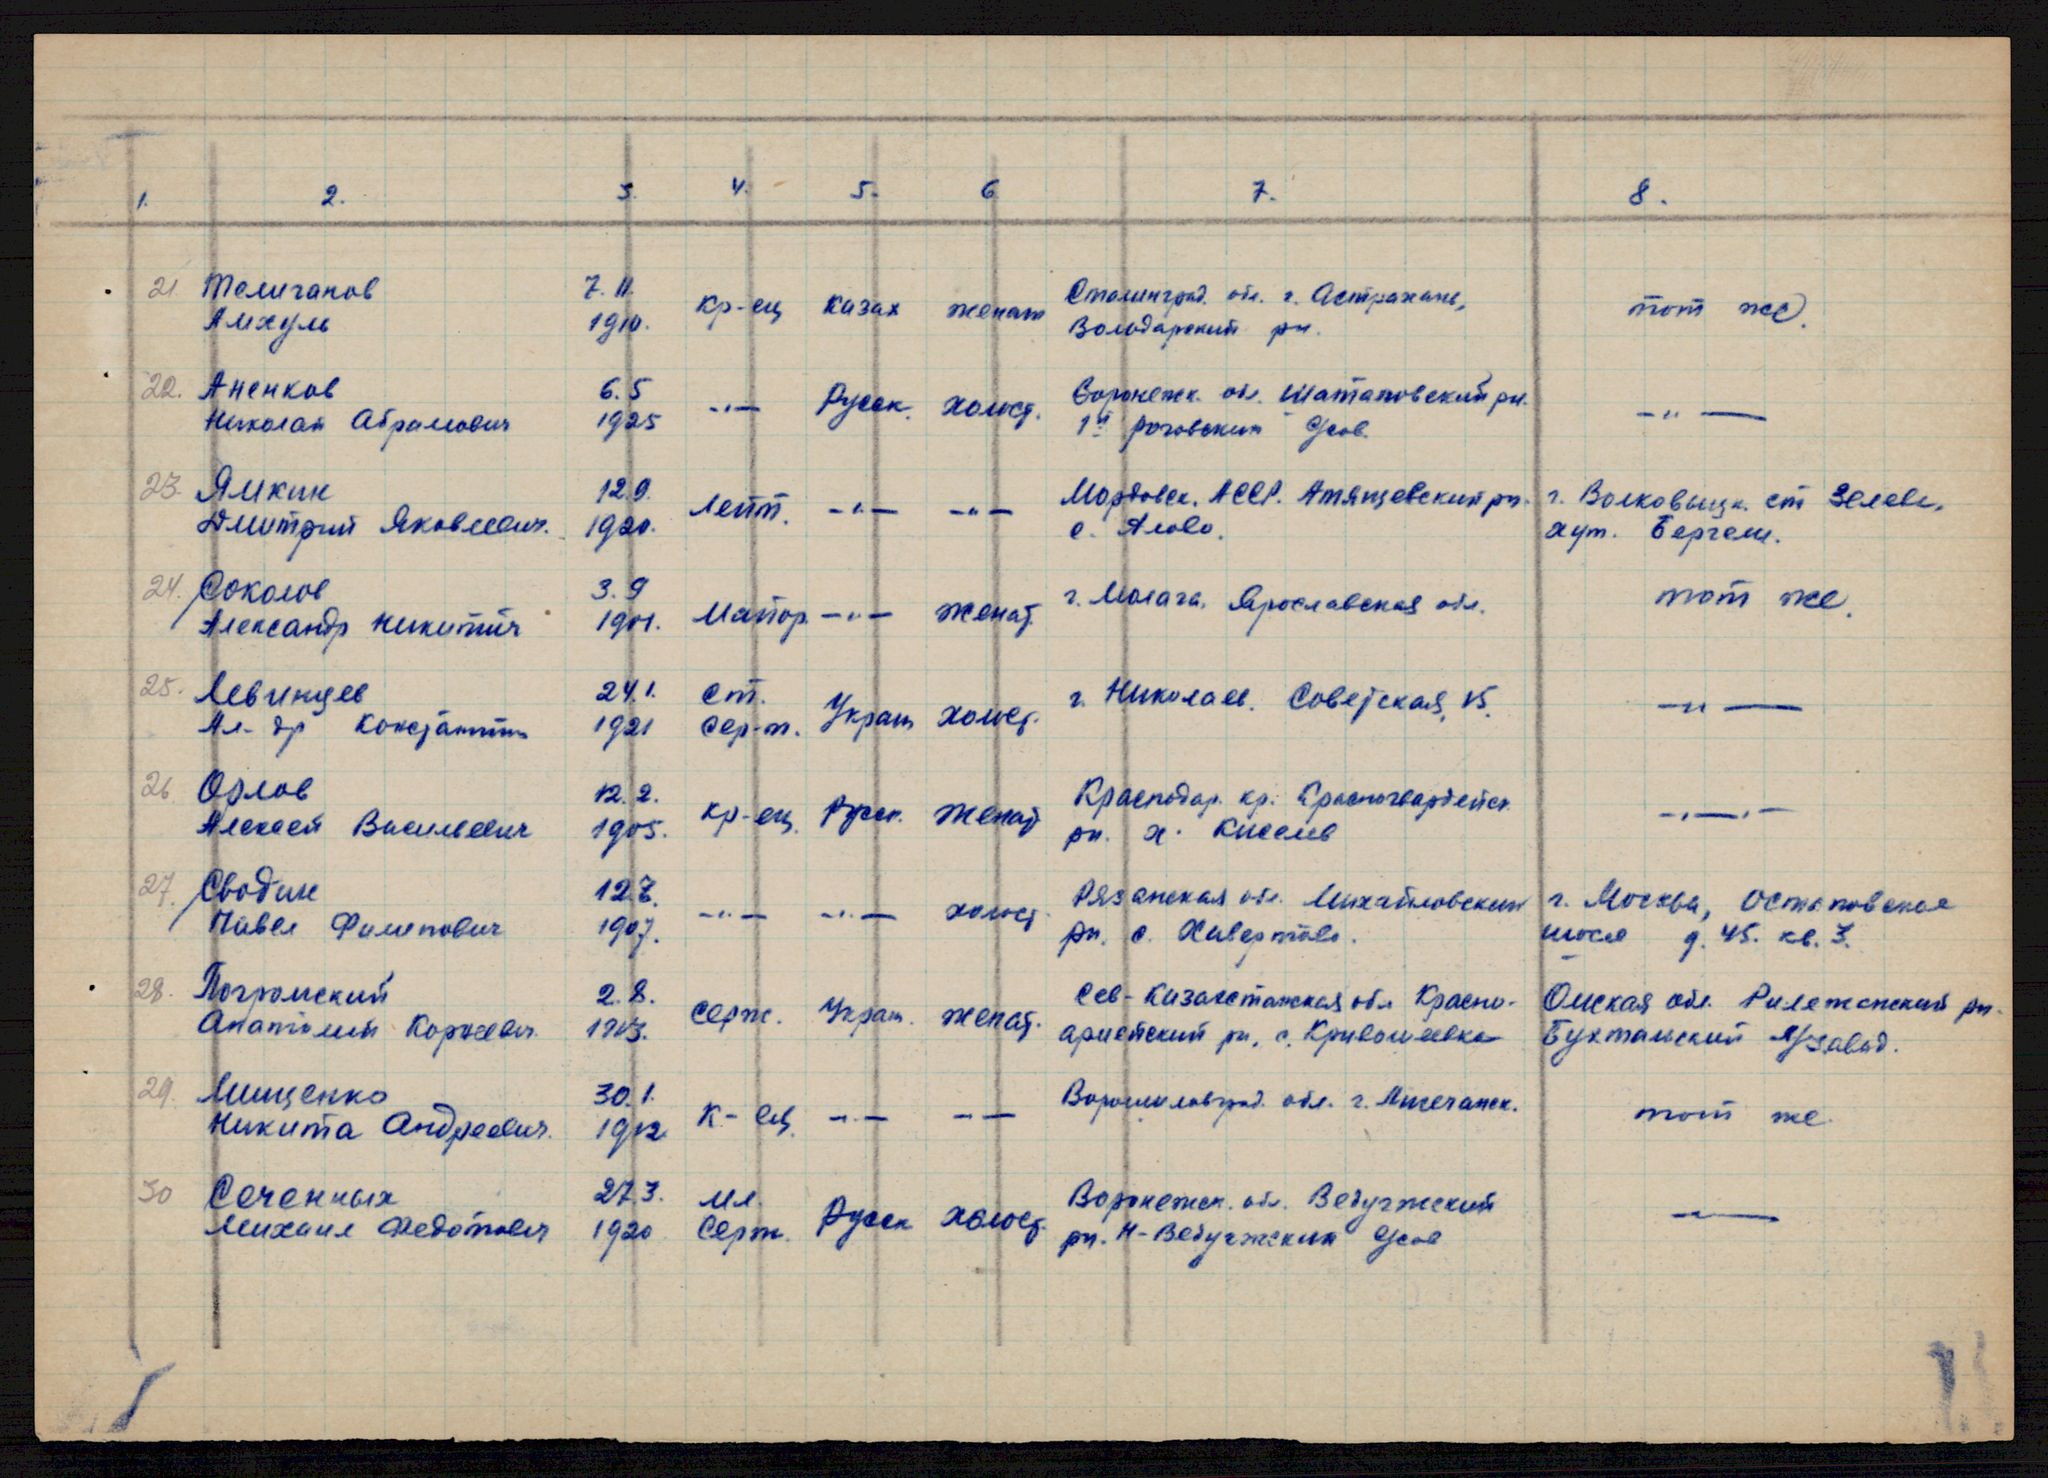 1. 2. 3. 4. 5. 6 7. 8.
21. Теличанов 7.11. Кр-ец Казах женат Сталинград. обл. г. Астрахань, тот же.
Амхуль 1910. Володарский рн.
22. Аненков 6.5 -"- Русск. холост. Воронеж. обл. Шаталовский рн. -"-
Николай Абрамович 1925 1й роговский Усов.
23. Ямкин 12.9. Лейт. -"- -"- Мордовск. АССР. Атящевский рн. г. Волковыцк. ст Зелеве,
Дмитрий Яковлевич. 1920. с. Алово. хут. Бергели.
24. Соколов 3.9 Майор -"- женат. г. Молага, Ярославская обл. тот же.
Александр Никитич 1901.
25. Левинцев 24.1. Ст. Украин холост. г. Николаев. Советская, 15. -"-
Ал-др Константин 1921 Сер-т.
26. Орлов 12.2. Кр-ец. Русск. Женат Краснодар. кр. Красногвардейск. -"-
Алексей Васильевич 1905. рн. х. Киселев
27. Сводин 12.7. -"- -"- холост. Рязанская обл. Михайловский г. Москва, Остаповское
Павел Филипович 1907. рн. с. Хавертово. шосе д. 45. кв. 3.
28. Погромский 2.8. Серж. Украин. женат. Сев-Казахстанская обл Красно- Омская обл.
Анатолий Корнеевич 1903. армейский рн, с. Кривошеевка
29. Мищенко 30.1. К-ец. -"- -"- Ворошиловград. обл. г. Лисечанск. тот же.
Никита Андреевич. 1912
30 Сеченных 27.3. Мл. Русск холост. Воронежск. обл. Ведучжский -"-
Михаил Федотович 1920 Серж. рн. Н-Ведучжский Усов